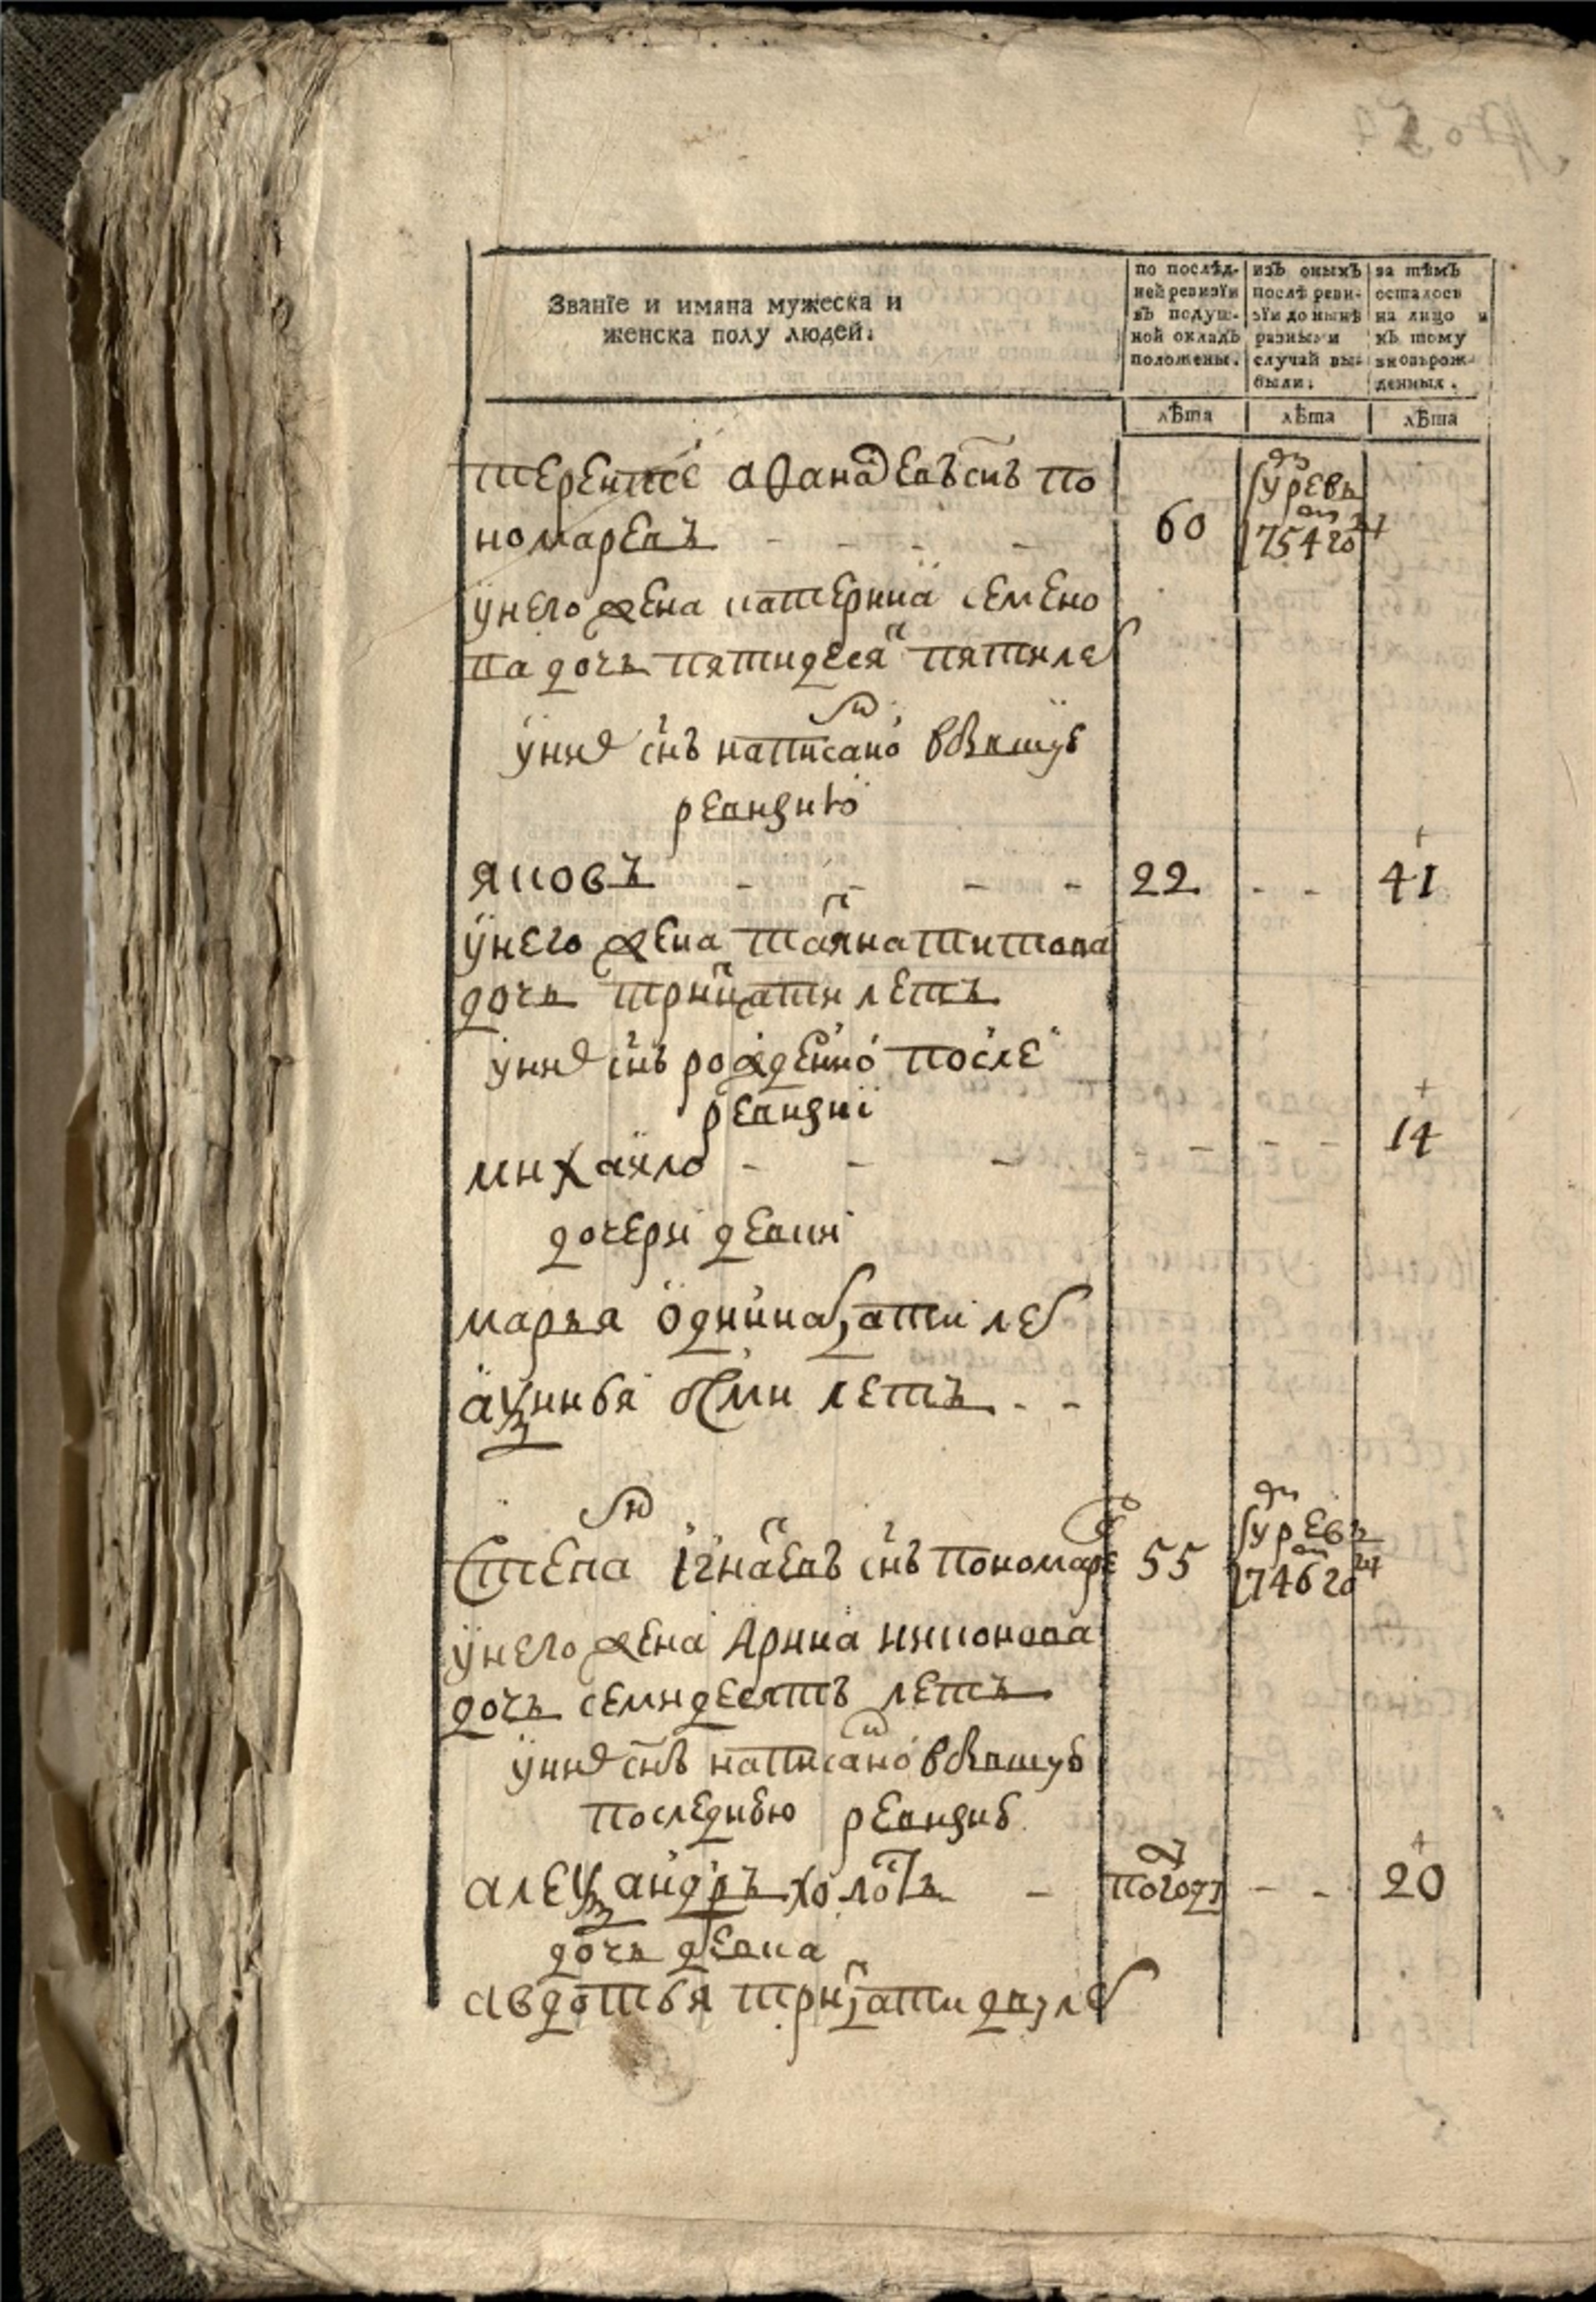 Званїе и имяна мужеска и
женска полу людей.
по послѣд-
ней ревизїи
въ подуш-
ной окладъ
положены.
изъ оныхъ
послѣ реви-
зїи до нынѣ
разными
случаи вы-
были.
за тѣмъ
осталось
на лицо и
къ тому
вновьрож-
денныхъ.
лѣта
лѣта
лѣта
терентее афанасевъ снъ по
номаревъ - - - -
60
умре въ
1754 году
унего жена катерина семено
ва дочь пятидесят пяти лет
уних снъ написаной вбывшую
ревизию
яковъ - - - -
22 - - 41
унего жена татяна титова
дочь трицати летъ
уних снъ рожденной после
ревизиї
михаило - - - - - - 14
дочери девки
марья одиннатцати лет
аксинья осми летъ - -
степан игнатевъ снъ пономарев
55
умре въ
1746 году
унего жена арина никонова
дочь семидесятъ летъ
уних снъ написаной вбывшую
последнюю ревизию
александръ холость -
полгода - - 20
дочь девка
авдотья трицати двух лет